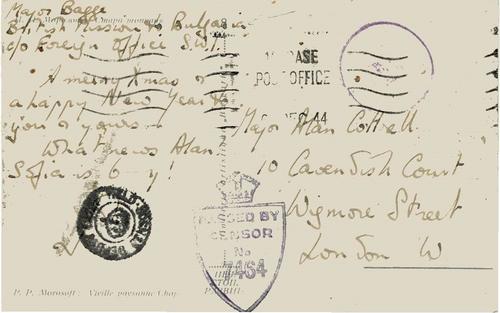 Major Bagge
British Mission to Bulgaria
c/o Foreign Office S.W.1.
A merry Xmas &
a happy New Year to
you & yours
What news Alan
Sofia is b y!
BASE
POST OFFICE
44
Major Alan Cottell
10 Cavendish Court
Wigmore Street
London W
PASSED BY
CENSOR
No
7464
P. P. Morosoff: Vieille paysanne